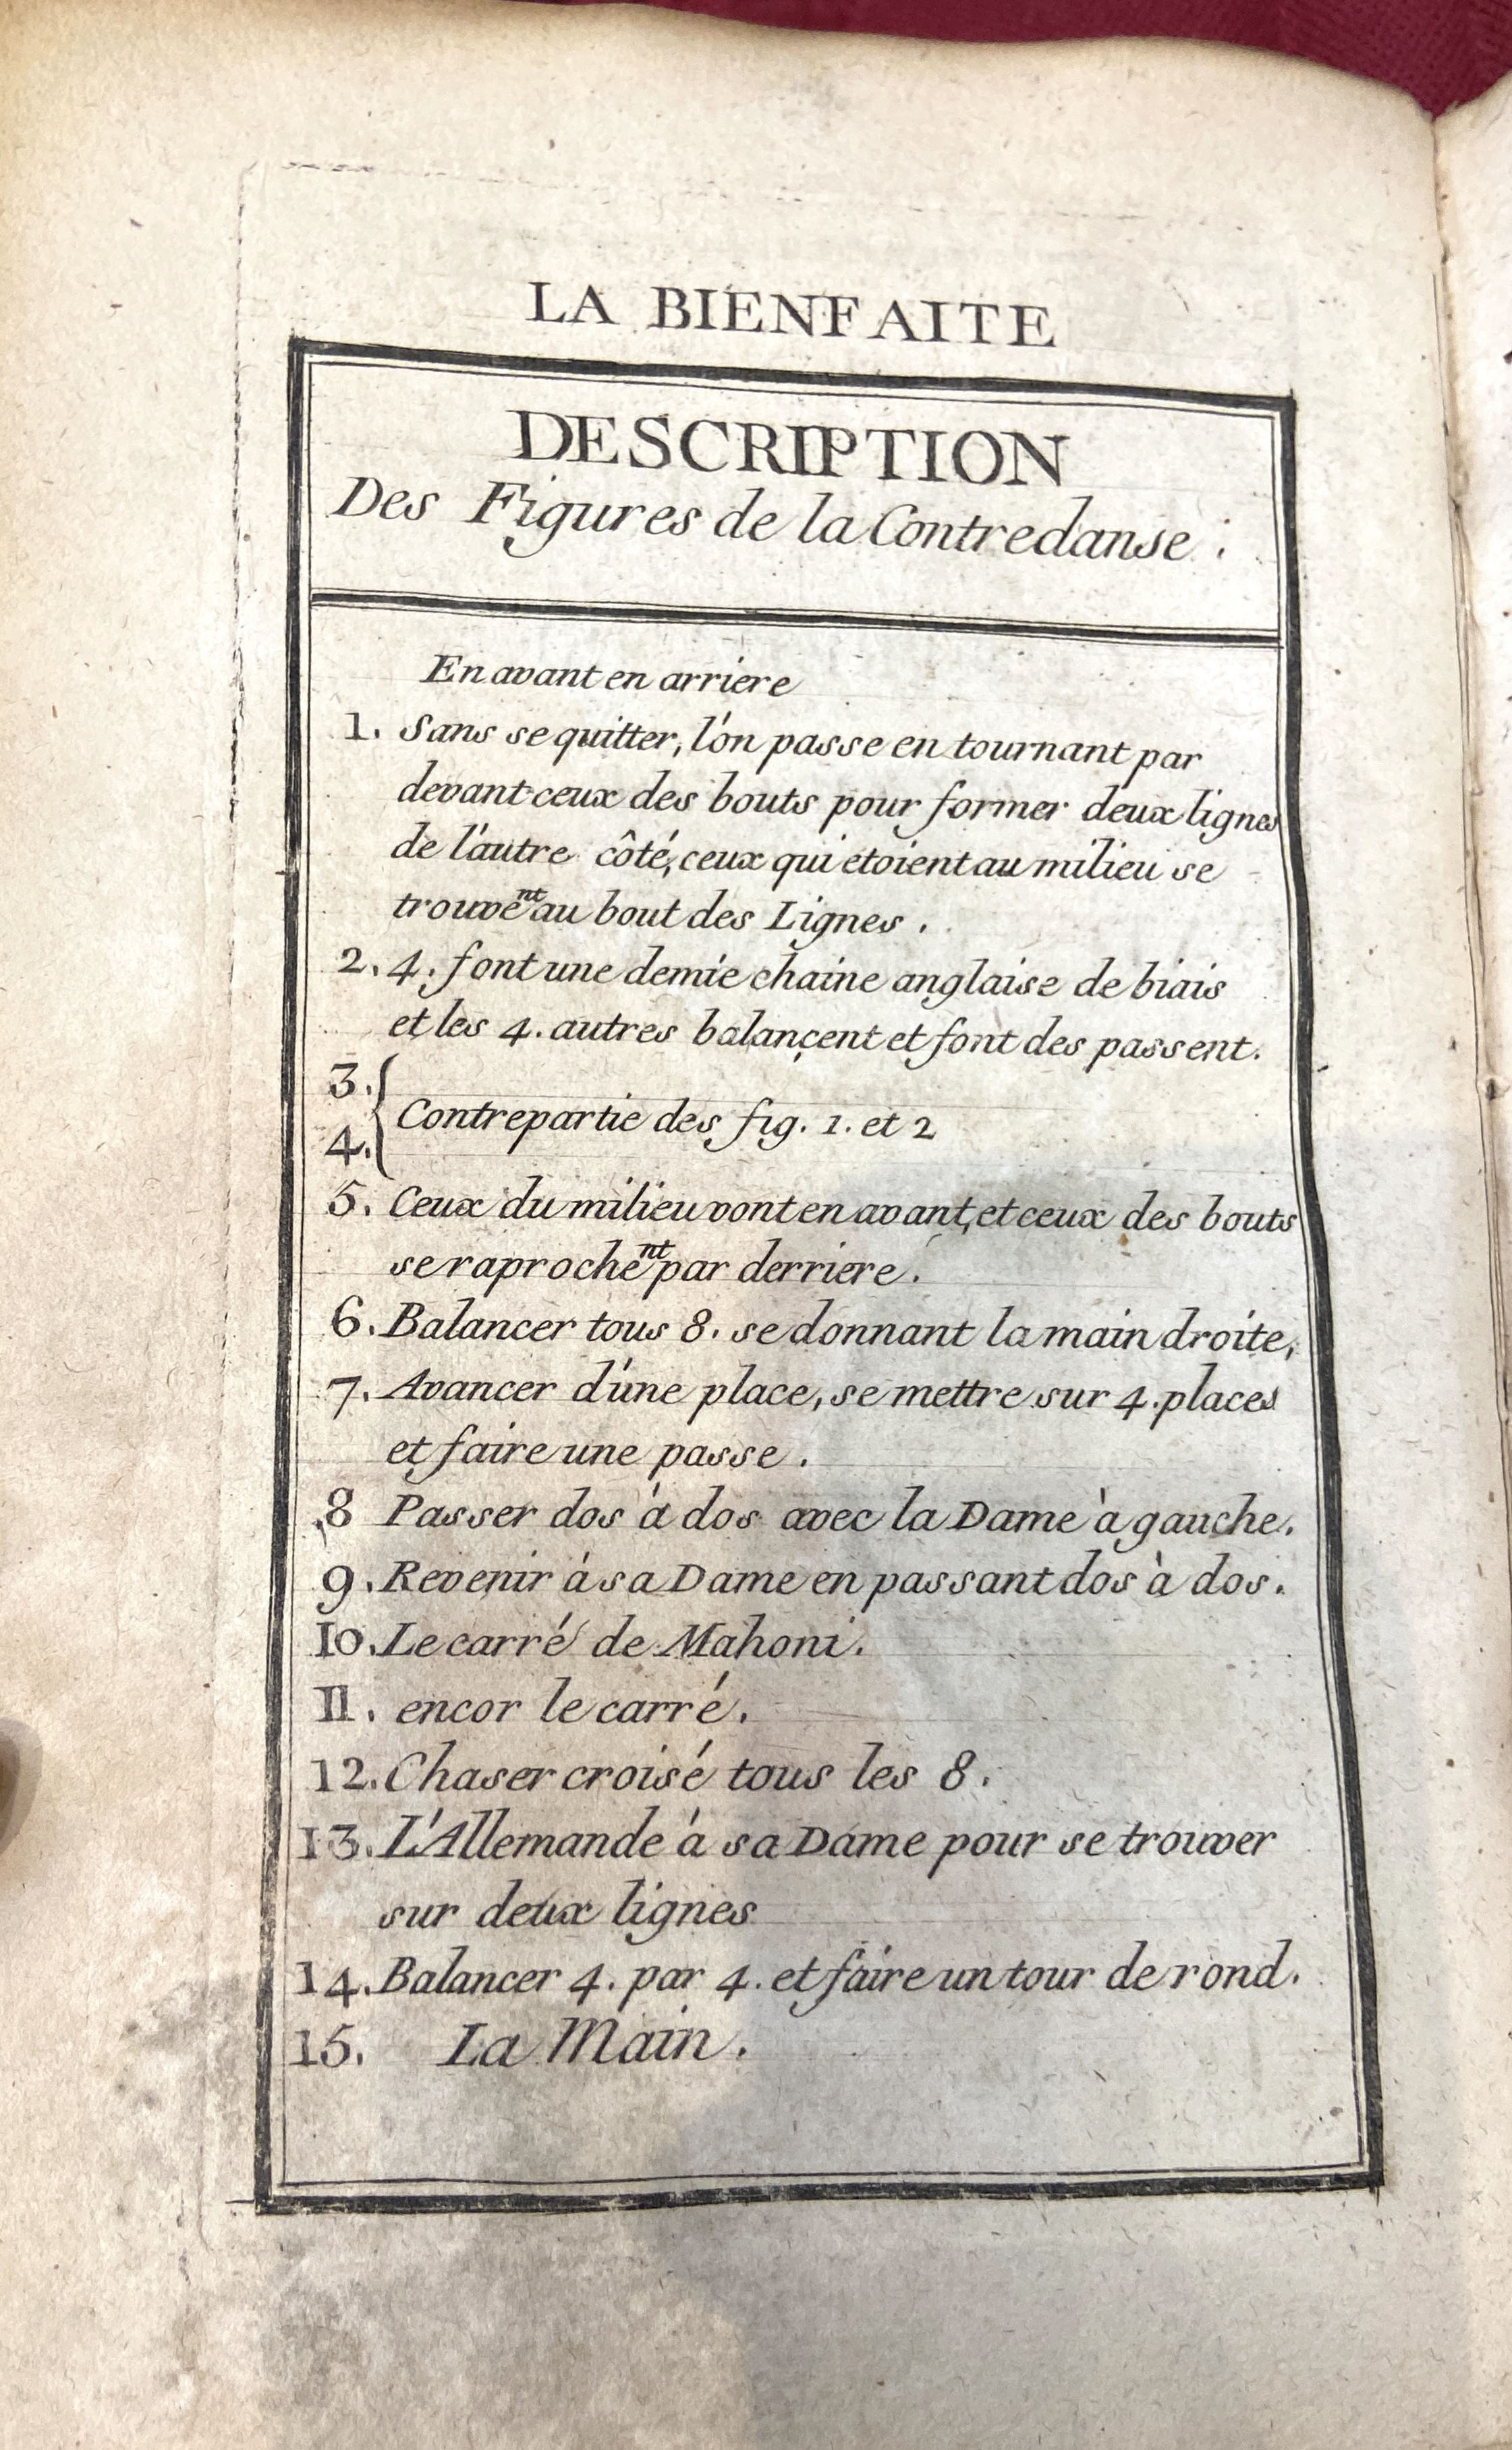 LA BIENFAITE
DESCRIPTION
Des Figures de la Contredanse.
En avant en arriere
1. Sans se quitter, l'on passe en tournant par
devant ceux des bouts pour former deux lignes
de l'autre côté, ceux qui etoient au milieu se
trouvent au bout des Lignes.
2. 4. font une demie chaine anglaise de biais
et les 4. autres balançent et font des passent.
3.
4. { Contrepartie des fig. 1. et 2
5. Ceux du milieu vont en avant, et ceux des bouts
se raprochent par derriere.
6. Balancer tous 8. se donnant la main droite,
7. Avancer d'une place, se mettre sur 4. places
et faire une passe.
8 Passer dos à dos avec la Dame à gauche.
9. Revenir à sa Dame en passant dos à dos.
10. Le carré de Mahoni.
11. encor le carré.
12. Chaser croisé tous les 8.
13. L'Allemande à sa Dame pour se trouver
sur deux lignes
14. Balancer 4. par 4. et faire un tour de rond.
15. La Main.